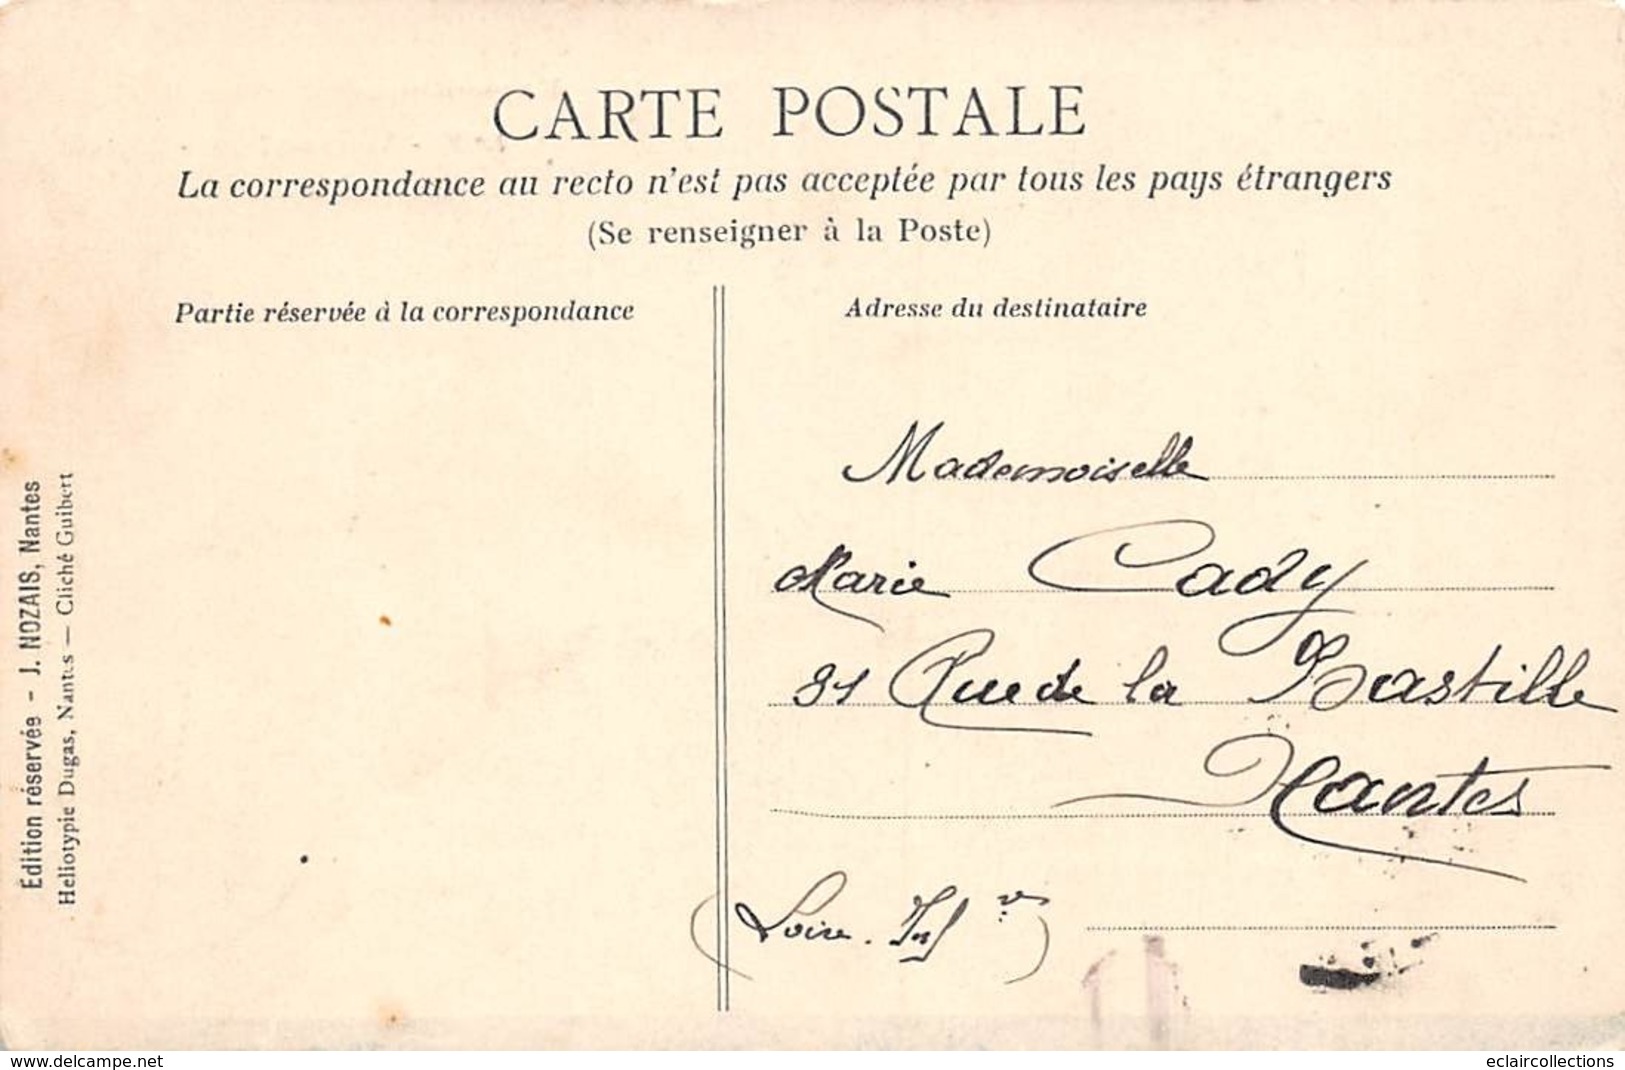 CARTE POSTALE
La correspondance au recto n'est pas acceptée par tous les pays étrangers
(Se renseigner à la Poste)
Partie réservée à la correspondance
Adresse du destinataire
Mademoiselle
Marie Cady
81 Rue de la Bastille
Nantes
(Loire. Infre)
Edition réservée - J. NOZAIS, Nantes
Heliotypie Dugas, Nantes — Cliché Guibert
www.delcampe.net
eclaircollections